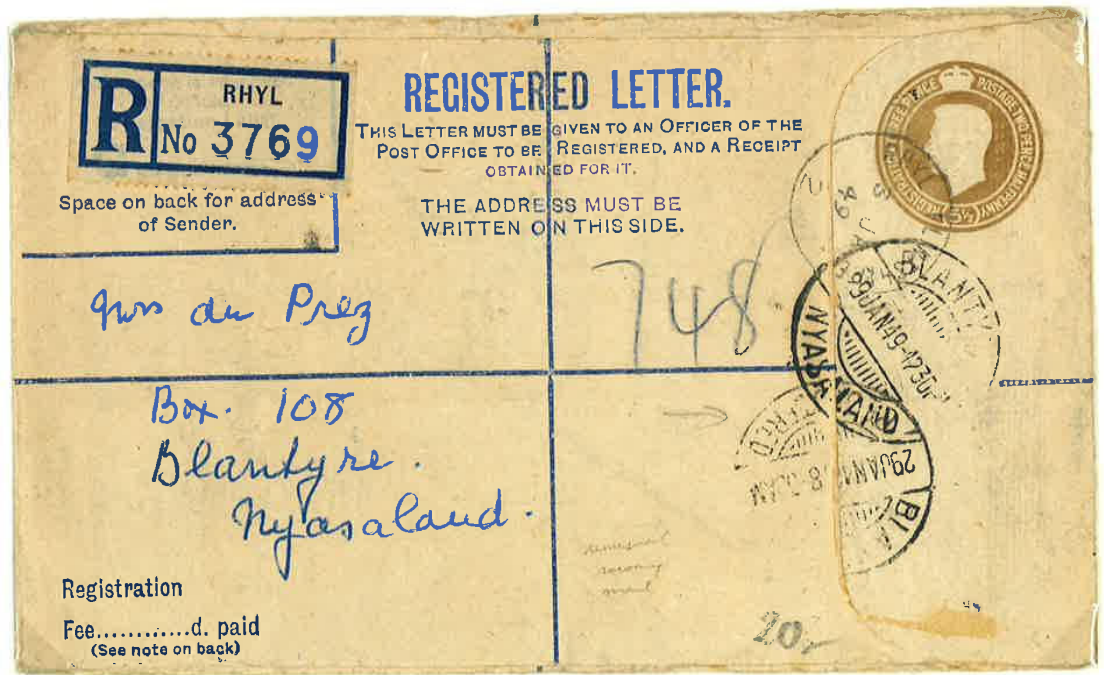 RHYL
R No 3769
Space on back for address
of Sender.
REGISTERED LETTER.
THIS LETTER MUST BE GIVEN TO AN OFFICER OF THE
POST OFFICE TO BE REGISTERED, AND A RECEIPT
OBTAINED FOR IT.
THE ADDRESS MUST BE
WRITTEN ON THIS SIDE.
POSTAGE TWO PENCE HALFPENNY
REGISTRATION THREE PENCE
5½D
748
BLANTY
29JAN49-1230P
NYASALAND
29JAN
BLA
du Prez
Box. 108
Blantyre.
Nyasaland.
unusual
Registration
Fee............d. paid
(See note on back)
20